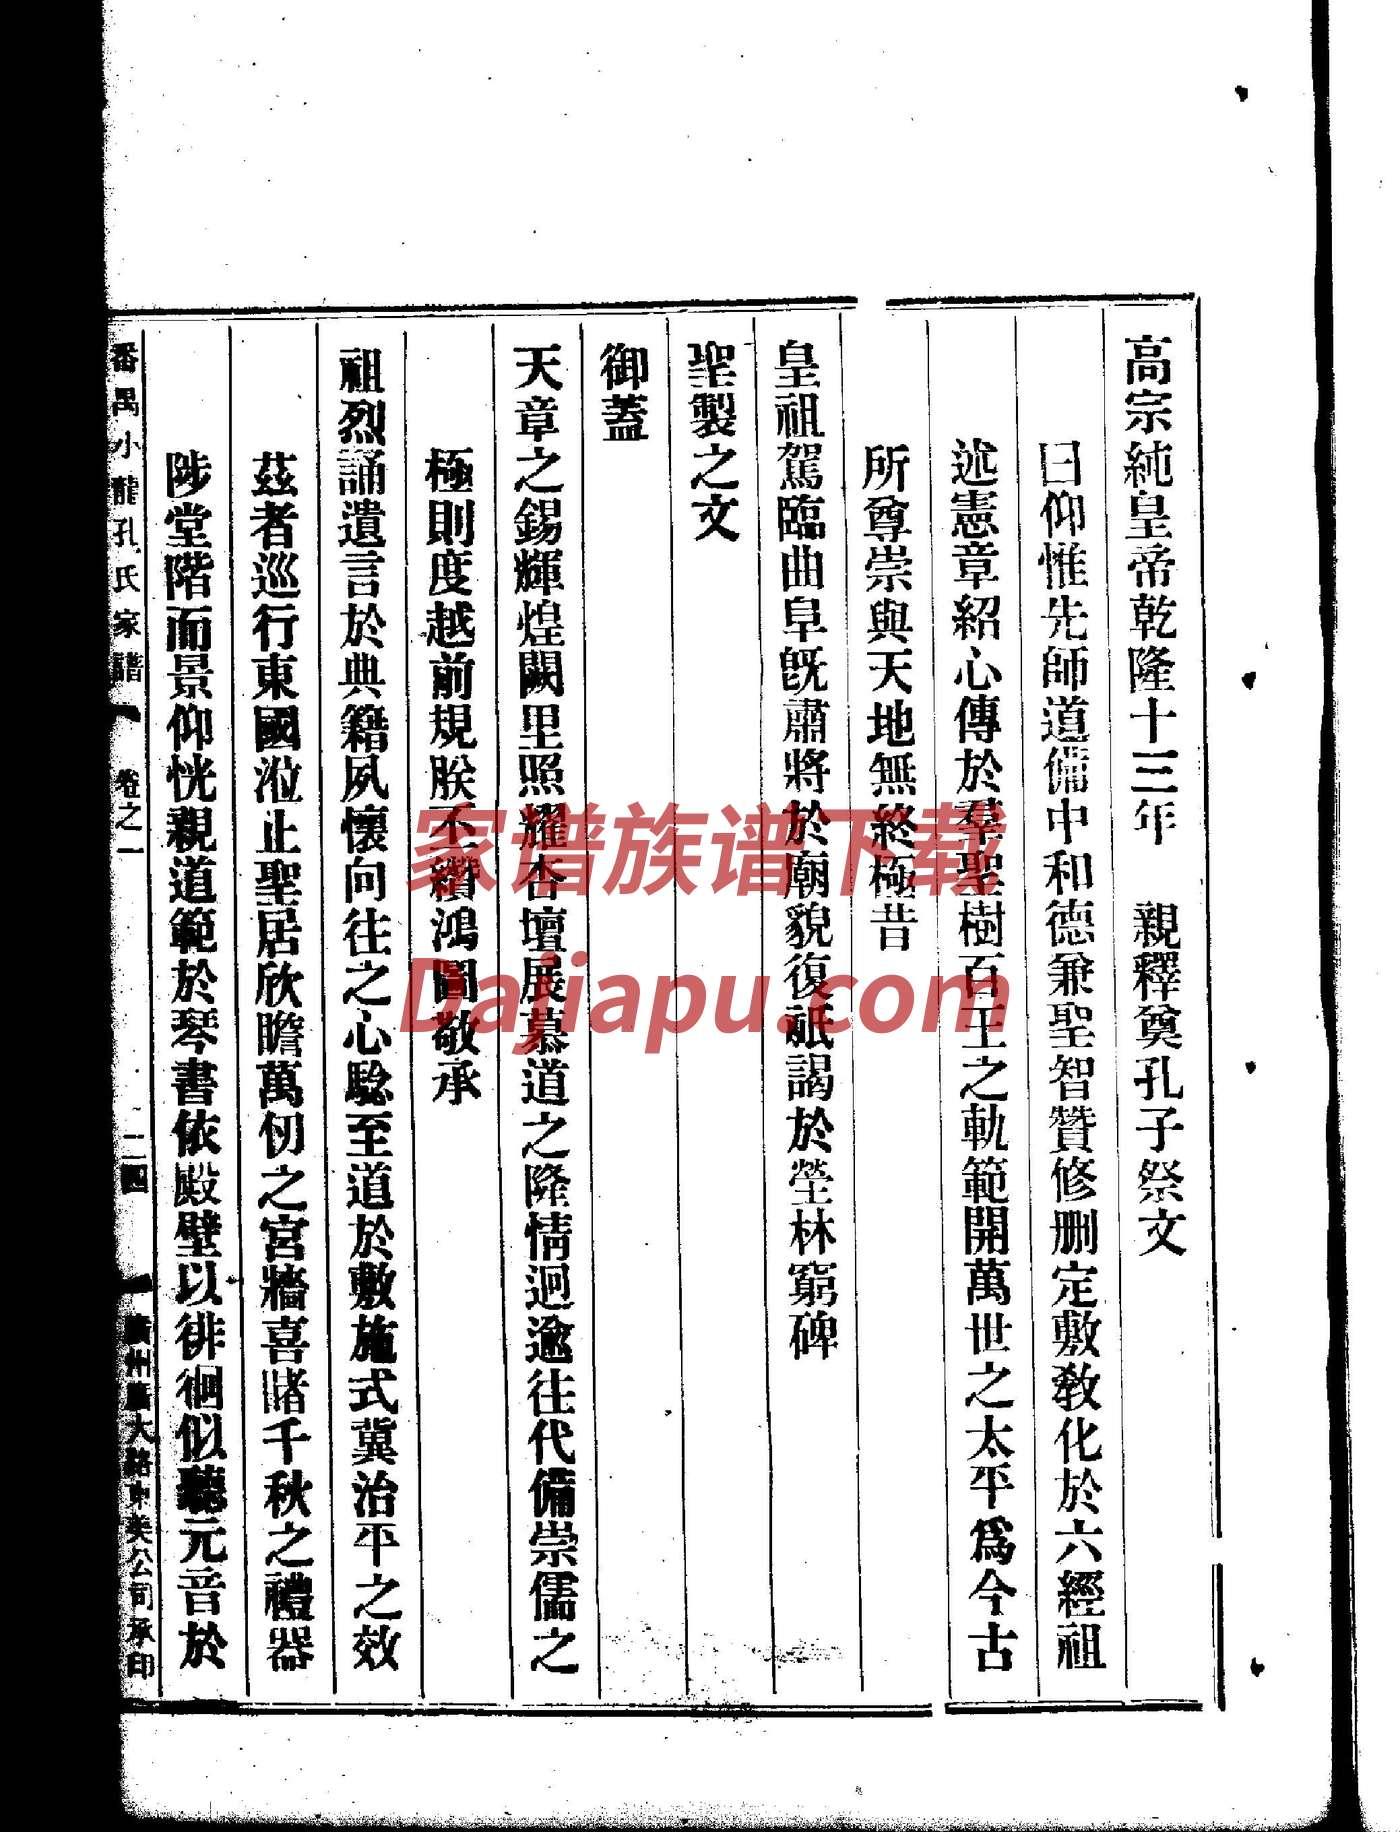 高宗純皇帝乾隆十三年　親釋奠孔子祭文
曰仰惟先師道備中和德兼聖智贊修刪定敷敎化於六經祖
述憲章紹心傳於羣聖樹百王之軌範開萬世之太平爲今古
所尊崇與天地無終極昔
皇祖駕臨曲阜旣肅將於廟貌復祗謁於塋林窮碑
聖製之文
御蓋
天章之錫輝煌闕里照耀杏壇展慕道之隆情迥逾往代備崇儒之
極則度越前規朕丕纘鴻圖敬承
祖烈誦遺言於典籍夙懷向往之心騐至道於敷施式冀治平之效
茲者巡行東國涖止聖居欣瞻萬仞之宮牆喜睹千秋之禮器
陟堂階而景仰恍親道範於琴書依殿壁以徘徊似聽元音於
番禺小龍孔氏家譜　卷之一　二四　廣州廣大路東美公司承印
家谱族谱下载
Dajiapu.com